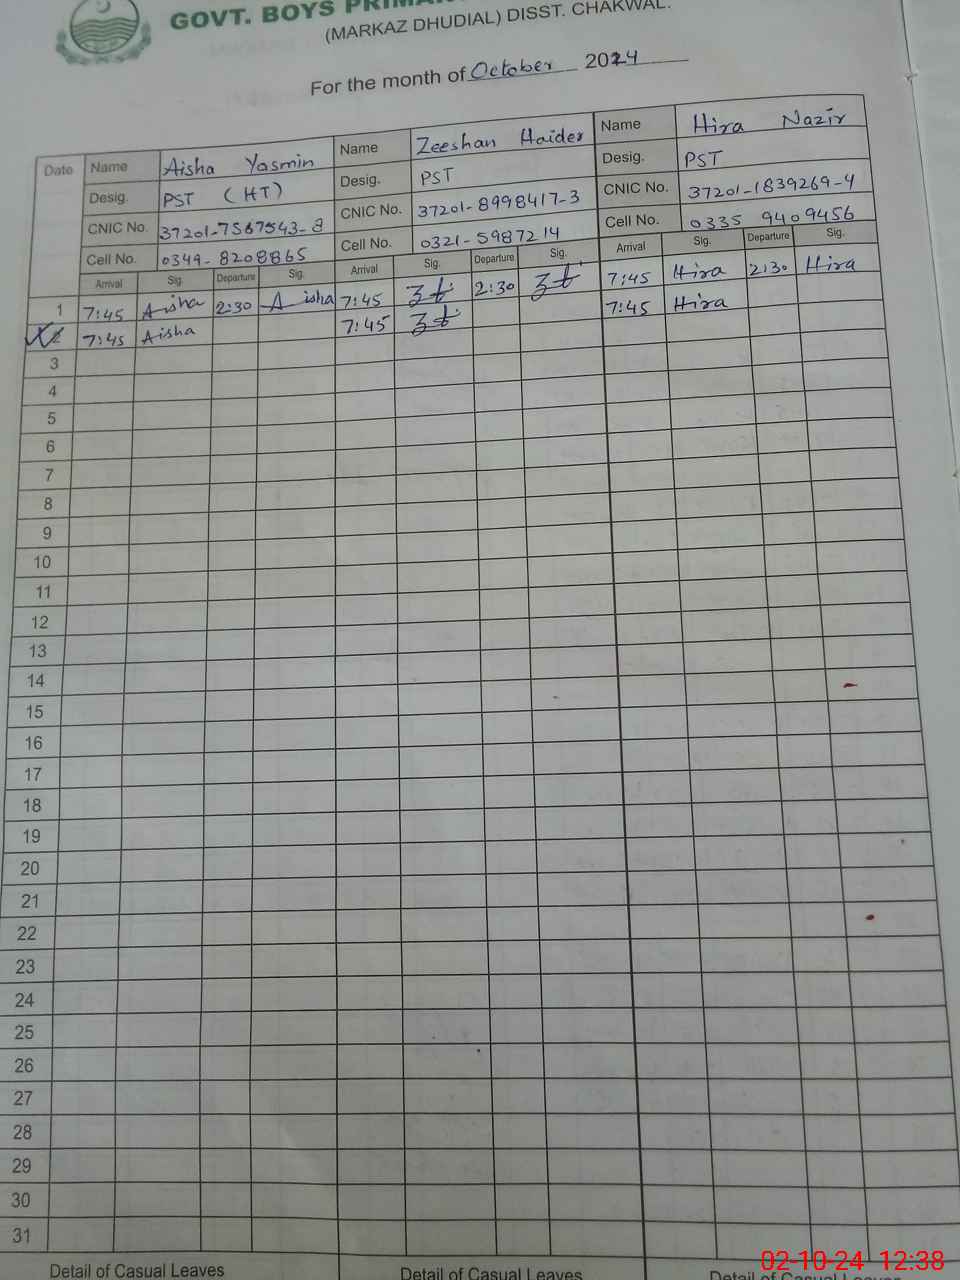 GOVT. BOYS PRIMA
(MARKAZ DHUDIAL) DISST. CHAKWAL.
For the month of October 2024
Date Name Aisha Yasmin Name Zeeshan Haider Name Hira Nazir
Desig. PST (HT) Desig. PST Desig. PST
CNIC No. 37201-7567543-8 CNIC No. 37201-8998417-3 CNIC No. 37201-1839269-4
Cell No. 0349-8208865 Cell No. 0321-5987214 Cell No. 0335 9409456
Arrival Sig. Departure Sig. Arrival Sig. Departure Sig. Arrival Sig. Departure Sig.
1 7:45 Aisha 2:30 Aisha 7:45 2:30 7:45 Hira 2:30 Hira
2 7:45 Aisha 7:45 7:45 Hira
3
4
5
6
7
8
9
10
11
12
13
14
15
16
17
18
19
20
21
22
23
24
25
26
27
28
29
30
31
Detail of Casual Leaves Detail of Casual Leaves Detail of Casual Leaves
02-10-24 12:38